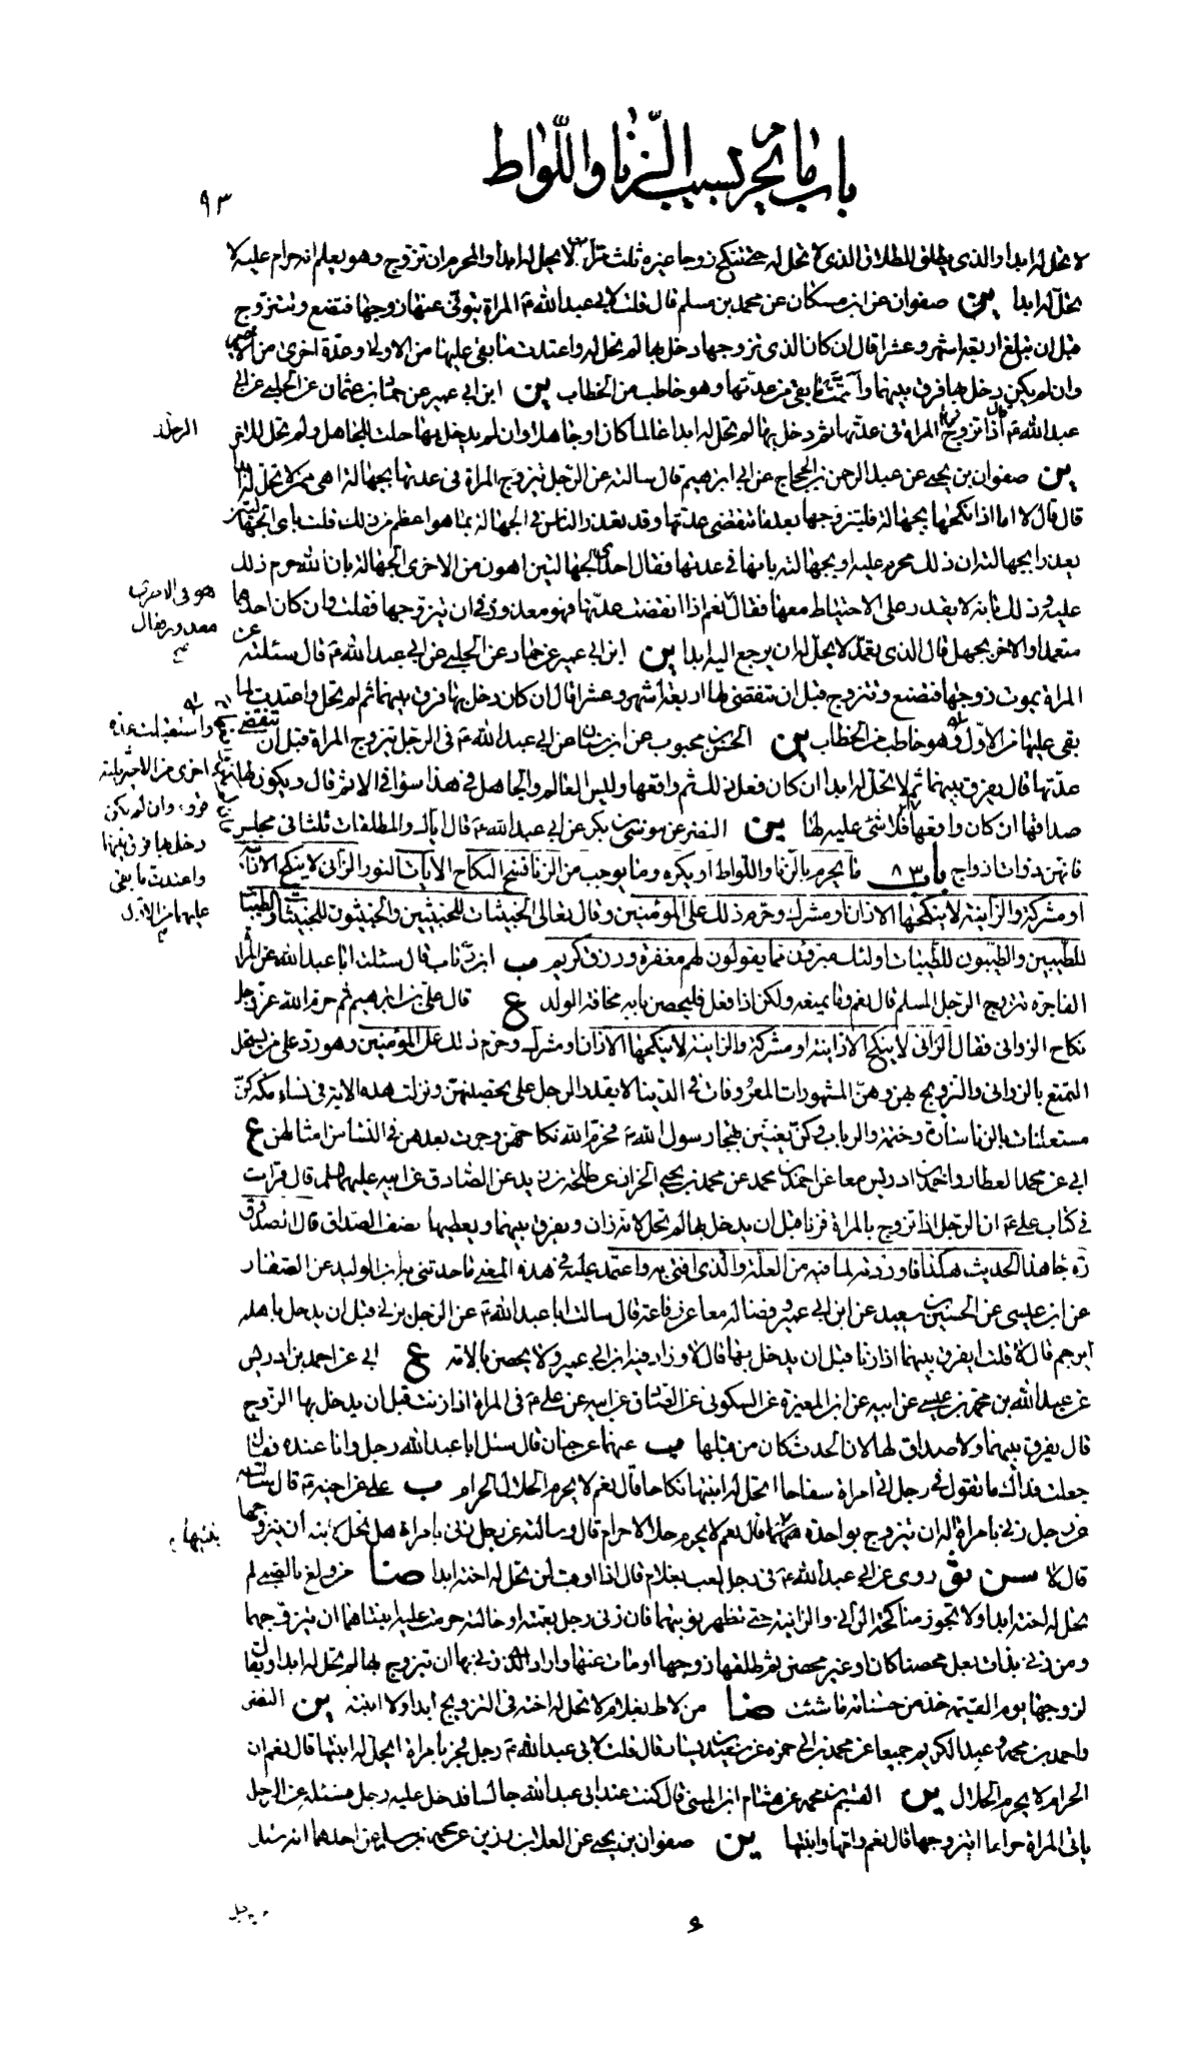 باب ما يحرم بسبب الزنا واللواط
٩٣
لا تحل له ابدا والذى يطلق الطلاق الذى لا تحل له حتى تنكح زوجا غيره ثلث مرات لا يحل له ابدا والمحرم ان تزوج وهو يعلم انه حرام عليه لا
يحل له ابدا ين صفوان عن ابن مسكان عن محمد بن مسلم قال قلت لابى عبد الله ع المراة يتوفى عنها زوجها فتضع وتتزوج
قبل ان تبلغ اربعة اشهر وعشرا قال ان كان الذى تزوجها دخل بها لم تحل له واعتدت ما بقى عليها من الاولى وعدة اخرى من الاخير
وان لم يكن دخل بها فرق بينهما واتمت ما بقى من عدتها وهو خاطب من الخطاب ين ابن ابى عمير عن حماد بن عثمان عن الحلبى عن ابى
عبد الله ع قال اذا تزوج المراة فى عدتها ثم دخل بها لم تحل له ابدا عالما كان او جاهلا وان لم يدخل بها حلت للجاهل ولم تحل للاخر
الرجل
ين صفوان بن يحيى عن عبد الرحمن بن الحجاج عن ابى ابرهيم قال سالته عن الرجل تزوج المراة فى عدتها بجهالة اهى ممن لا تحل له ابدا
قال قال لا اما اذا نكحها بجهالة فليتزوجها بعد ما تنقضى عدتها وقد يعذر الناس فى الجهالة بما هو اعظم من ذلك قلت باى الجهالتين
يعذر ابجهالته ان ذلك محرم عليه او بجهالته بانها فى عدتها فقال احدى الجهالتين اهون من الاخرى الجهالة بان الله حرم ذلك
عليه وذلك بانه لا يقدر على الاحتياط معها فقال نعم اذا انقضت عدتها فهو معذور فى ان يتزوجها فقلت وان كان احدهما
هو فى الاخرى معذور فقال
متعمدا والاخر بجهل قال الذى تعمد لا يحل له ان يرجع اليه ابدا ين ابن ابى عمير عن حماد عن الحلبى عن ابى عبد الله ع قال سئلته عن
المراة يموت زوجها فتضع وتتزوج قبل ان تنقضى لها اربعة اشهر وعشرا قال ان كان دخل بها فرق بينهما ثم لم تحل واعتدت لما
بقى عليها من الاول وهو خاطب من الخطاب ين الحسن بن محبوب عن ابن سنان عن ابى عبد الله ع فى الرجل يتزوج المراة قبل ان تنقضى
واستقبلت عدة اخرى من الاخير ثلثة قروء وان لم يكن دخل بها فرق بينهما واعتدت ما بقى عليها من الاول
عدتها قال يفرق بينهما ثم لا تحل له ابدا ان كان فعل ذلك ثم واقعها وليس العالم والجاهل فى هذا سواء فى الاثم قال ويكون لها
صداقها ان كان واقعها فلا شئ عليه لها ين النضر عن موسى بن بكر عن ابى عبد الله ع قال اياك والمطلقات ثلثا فى مجلس
فانهن ذوات ازواج باب ٨٣ ما يحرم بالزنا واللواط او يكره وما يوجب من الزنا فسخ النكاح الايات النور الزانى لا ينكح الا زانية
او مشركة والزانية لا ينكحها الا زان او مشرك وحرم ذلك على المؤمنين وقال تعالى الخبيثات للخبيثين والخبيثون للخبيثات والطيبات
للطيبين والطيبون للطيبات اولئك مبرؤن مما يقولون لهم مغفرة ورزق كريم ب ابن رئاب قال سئلت ابا عبد الله عن المراة
الفاجرة تتزوج الرجل المسلم قال نعم وما يمنعه ولكن اذا فعل فليحصن بابه مخافة الولد ع قال على بن ابرهيم ثم حرم الله عز وجل
نكاح الزوانى فقال الزانى لا ينكح الا زانية او مشركة والزانية لا ينكحها الا زان او مشرك وحرم ذلك على المؤمنين وهو رد على من يستحل
التمتع بالزوانى والتزويج بهن وهن المشهورات المعروفات فى الدنيا لا يقدر الرجل على تحصينهن ونزلت هذه الاية فى نساء مكة كن
مستعلنات بالزنا سارة وحنتمة والرباب وكن يغنين بهجاء رسول الله ص فحرم الله نكاحهن وجرت بعدهن فى النساء من امثالهن ع
ابى عن محمد العطار واحمد بن ادريس معا عن احمد بن محمد عن محمد بن يحيى الخزاز عن طلحة بن زيد عن الصادق عن ابيه عليهما السلم قال قرات
فى كتاب على ع ان الرجل اذا تزوج بالمراة فزنا قبل ان يدخل بها لم تحل له لانه زان ويفرق بينهما ويعطيها نصف الصداق قال الصدوق
ره جاء هذا الحديث هكذا فاوردته لما فيه من العلة والذى افتى به واعتمد عليه فى هذه المعنى ما حدثنى به ابن الوليد عن الصفار
عن ابن عيسى عن الحسين بن سعيد عن ابن ابى عمير وفضالة معا عن رفاعة قال سالت ابا عبد الله ع عن الرجل يزنى قبل ان يدخل باهله
ايرجم قال لا قلت ايفرق بينهما اذا زنا قبل ان يدخل بها قال لا وزاد فيه ابن ابى عمير ولا يحصن بالامة ع ابى عن احمد بن ادريس
عن عبد الله بن محمد بن عيسى عن ابيه عن ابن المغيرة عن السكونى عن الصادق عن ابيه عن على ع فى المراة اذا زنت قبل ان يدخل بها الزوج
قال يفرق بينهما ولا صداق لها لان الحدث كان من قبلها ب عنهما عن حنان قال سئل ابا عبد الله رجل وانا عنده فقال
جعلت فداك ما تقول فى رجل اتى امراة سفاحا اتحل له ابنتها نكاحا قال نعم لا يحرم الحلال الحرام ب على عن اخيه ع قال سالته
عن رجل زنى بامراة اله ان يتزوج بواحدة منهما قال نعم لا يحرم حلالا حرام قال وسالته عن رجل زنى بامراة هل تحل لابنه ان يتزوجها
قال لا سن نق روى عن ابى عبد الله ع فى رجل لعب بغلام قال اذا اوقب لن تحل له اخته ابدا ضا من ولغ بالصبى لم
تحل له اخته ابدا ولا تجوز مناكحة الزانى والزانية حتى تظهر توبتهما فان زنى رجل بعمته او خالته حرمت عليه ابنتاهما ان يتزوجهما
ومن زنى بذات بعل محصنا كان او غير محصن ثم طلقها زوجها او مات عنها واراد الذى زنى بها ان يتزوج بها لم تحل له ابدا ويقال
لزوجها يوم القيمة خذ من حسناته ما شئت ضا من لاط بغلام لا تحل له اخته فى التزويج ابدا ولا ابنته ين النضر
واحمد بن محمد وعبد الكريم جميعا عن محمد بن ابى حمزة عن سعيد بن يسار قال قلت لابى عبد الله ع رجل فجر بامراة ايحل له ابنتها قال نعم ان
الحرام لا يحرم الحلال ين القسم بن محمد عن هشام ابن المثنى قال كنت عند ابى عبد الله جالسا فدخل عليه رجل فسئله عن الرجل
ياتى المراة حراما ايتزوجها قال نعم وامها وابنتها ين صفوان بن يحيى عن العلا بن رزين عن محمد بن مسلم عن احدهما انه سئل